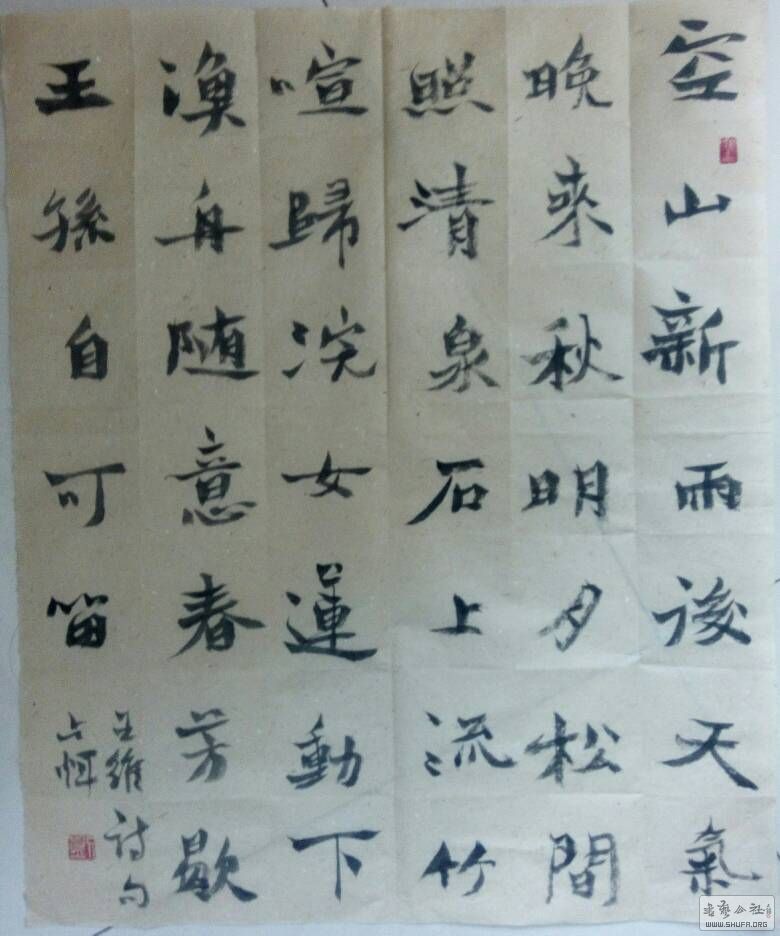 空山新雨後天氣
晚來秋明月松間
照清泉石上流竹
喧歸浣女蓮動下
漁舟随意春芳歇
王孫自可留
王維詩句
书艺公社
WWW.SHUFA.ORG